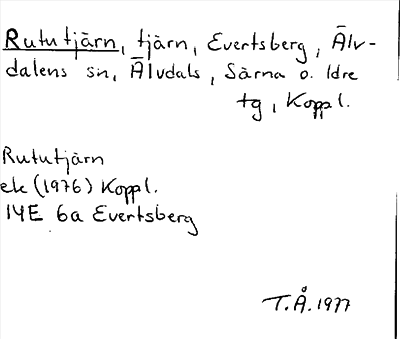 Rututjärn, tjärn, Evertsberg, Älv-
dalens sn, Älvdals, Särna o. Idre
tg, Koppl.
Rututjärn
ek (1976) Koppl.
14E 6a Evertsberg
T.Å. 1977